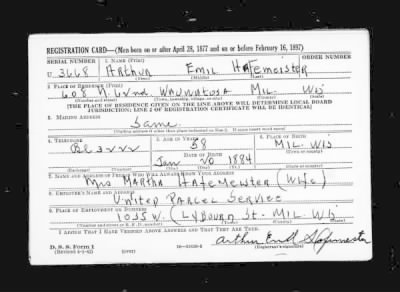 REGISTRATION CARD—(Men born on or after April 28, 1877 and on or before February 16, 1897)
SERIAL NUMBER 1. NAME (Print) ORDER NUMBER
U 3668 ARTHUR EMIL HAFEMEISTER
(First) (Middle) (Last)
2. PLACE OF RESIDENCE (Print)
N. 62nd WAUWATOSA MIL. WIS
(Number and street) (Town, township, village, or city) (County) (State)
[THE PLACE OF RESIDENCE GIVEN ON THE LINE ABOVE WILL DETERMINE LOCAL BOARD
JURISDICTION; LINE 2 OF REGISTRATION CERTIFICATE WILL BE IDENTICAL]
3. MAILING ADDRESS
Same
[Mailing address if other than place indicated on line 2. If same insert word same]
4. TELEPHONE 5. AGE IN YEARS 6. PLACE OF BIRTH
58
DATE OF BIRTH
MIL. WIS
JAN 20 1884
(Exchange) (Number) (Mo.) (Day) (Yr.) (State or country)
7. NAME AND ADDRESS OF PERSON WHO WILL ALWAYS KNOW YOUR ADDRESS
Mrs MARTHA HAFEMEISTER (WIFE)
8. EMPLOYER'S NAME AND ADDRESS
UNITED PARCEL SERVICE
9. PLACE OF EMPLOYMENT OR BUSINESS
1035 W. CLYBOURN St. MIL. WIS
(Number and street or R. F. D. number) (Town) (County) (State)
I AFFIRM THAT I HAVE VERIFIED ABOVE ANSWERS AND THAT THEY ARE TRUE.
D. S. S. Form 1
(Revised 4-1-42) (over)
Arthur Emil Hafemeister
(Registrant's signature)